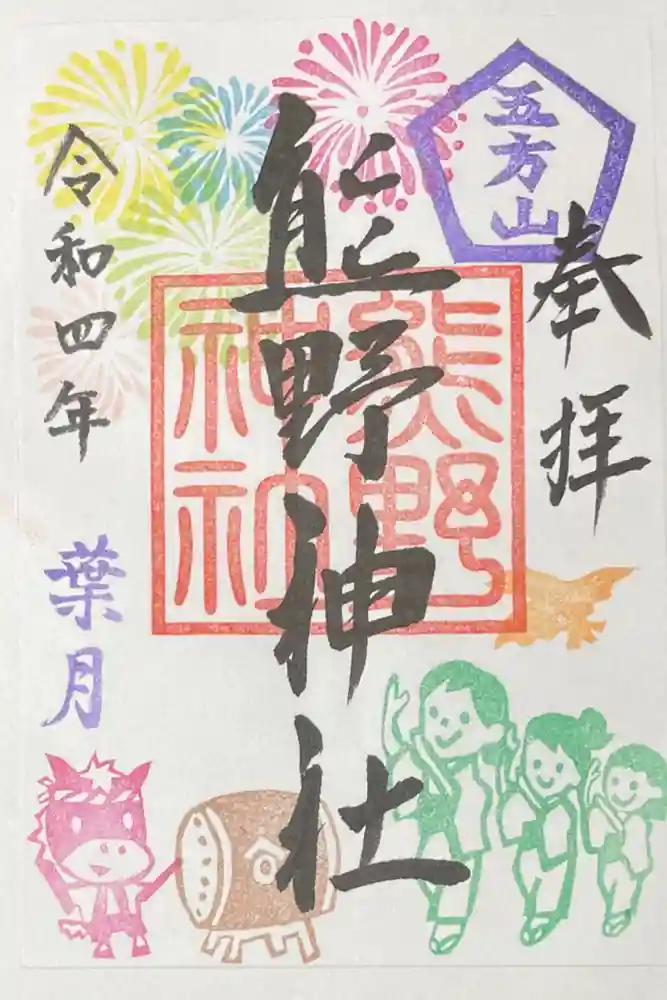 五方山
奉拝
熊野神社
熊野
神社
令和四年
葉月